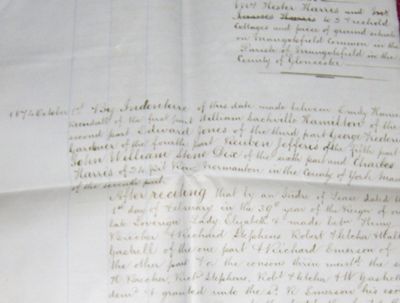 Mrs Hester Harris and Mr
Harris to 3 Freehold
Cottages and piece of ground situate
on Mangotsfield Common in the
Parish of Mangotsfield in the
County of Gloucester
1872 October 1st By Indenture of this date made between Emily Harris
of the first part William Sackville Hamilton of the
second part Edward Jones of the third part George Frederick
Gardner of the fourth part Reuben Jefferis of the fifth part
John William Stone Dix of the sixth part and Charles
Harris of in the County of York
of the seventh part
After reciting that by an Indre of Lease dated the
1st day of February in the 39th year of the Reign of our
late Sovereign Lady Elizabeth & made betn Henry
& Richard Stephens Robert Fletcher &
Gaskell of the one part & Richard Emerson of
the other part for the conson therein mentd the sd
H Richd Stephens, Robt Fletcher & W Gaskell
demd & granted unto the sd R Emerson his